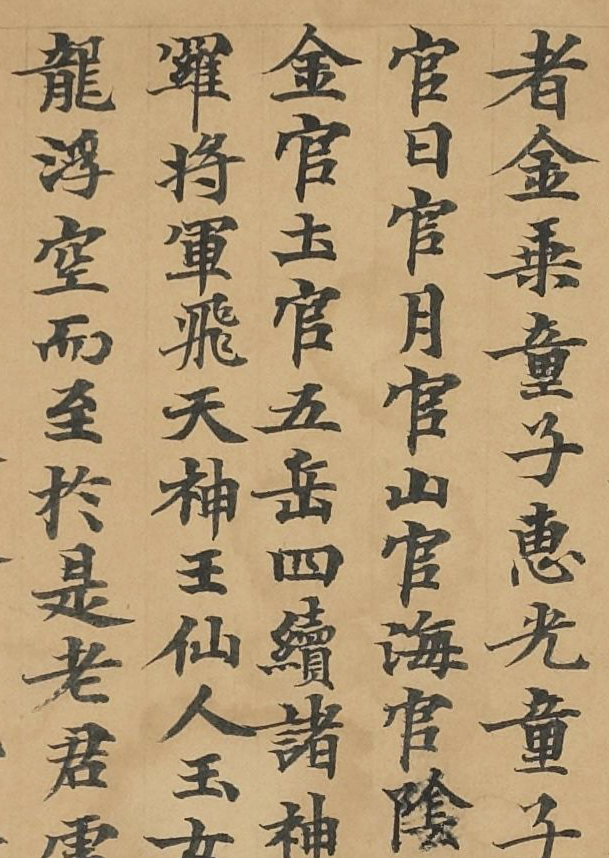 者金乗童子恵光童子
官日官月官山官海官陰
金官土官五岳四續諸神
羅将軍飛天神王仙人玉女
龍浮空而至於是老君